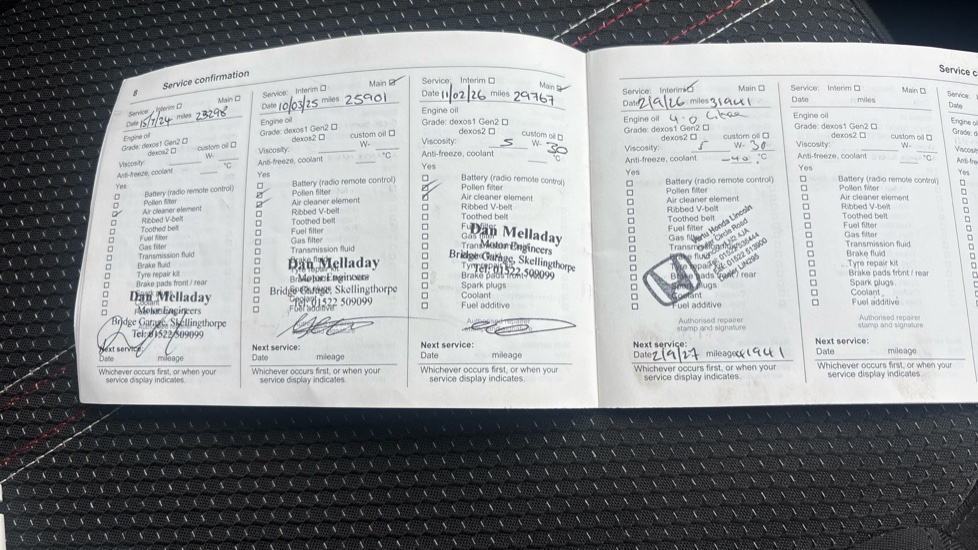 8 Service confirmation
Service: Interim ☐ Main ☐
Date 15/7/24 miles 23298
Engine oil
Grade: dexos1 Gen2 ☐
dexos2 ☐ custom oil ☐
Viscosity: W-
Anti-freeze, coolant °C
Yes
☐ Battery (radio remote control)
☐ Pollen filter
☑ Air cleaner element
☐ Ribbed V-belt
☐ Toothed belt
☐ Fuel filter
☐ Gas filter
☐ Transmission fluid
☐ Brake fluid
☐ Tyre repair kit
☐ Brake pads front / rear
Dan Melladay
Motor Engineers
Bridge Garage, Skellingthorpe
Tel: 01522 509099
Next service:
Date mileage
Whichever occurs first, or when your
service display indicates.
Service: Interim ☐ Main ☑
Date 10/03/25 miles 25901
Engine oil
Grade: dexos1 Gen2 ☐
dexos2 ☐ custom oil ☐
Viscosity: W-
Anti-freeze, coolant °C
Yes
☐ Battery (radio remote control)
☑ Pollen filter
☑ Air cleaner element
☐ Ribbed V-belt
☐ Toothed belt
☐ Fuel filter
☐ Gas filter
☐ Transmission fluid
Dan Melladay
Motor Engineers
Bridge Garage, Skellingthorpe
Tel: 01522 509099
☐ Fuel additive
Next service:
Date mileage
Whichever occurs first, or when your
service display indicates.
Service: Interim ☐ Main ☑
Date 11/02/26 miles 29767
Engine oil
Grade: dexos1 Gen2 ☐
dexos2 ☐ custom oil ☐
Viscosity: 5 W- 30
Anti-freeze, coolant °C
Yes
☐ Battery (radio remote control)
☑ Pollen filter
☑ Air cleaner element
☐ Ribbed V-belt
☐ Toothed belt
Dan Melladay
Motor Engineers
Bridge Garage, Skellingthorpe
Tel: 01522 509099
☐ Brake pads front / rear
☐ Spark plugs
☐ Coolant
☐ Fuel additive
Next service:
Date mileage
Whichever occurs first, or when your
service display indicates.
Service c
Service: Interim ☑ Main ☐
Date 2/9/26 miles 31941
Engine oil 4.0
Grade: dexos1 Gen2 ☐
dexos2 ☐ custom oil ☐
Viscosity: 5 W- 30
Anti-freeze, coolant -40 °C
Yes
☐ Battery (radio remote control)
☐ Pollen filter
☐ Air cleaner element
☐ Ribbed V-belt
☐ Toothed belt
☐ Fuel filter
☐ Gas filter
Vertu Honda Lincoln
☐ Fuel additive
Authorised repairer
stamp and signature
Next service:
Date 2/9/27 mileage 41941
Whichever occurs first, or when your
service display indicates.
Service: Interim ☐ Main ☐
Date miles
Engine oil
Grade: dexos1 Gen2 ☐
dexos2 ☐ custom oil ☐
Viscosity: W-
Anti-freeze, coolant °C
Yes
☐ Battery (radio remote control)
☐ Pollen filter
☐ Air cleaner element
☐ Ribbed V-belt
☐ Toothed belt
☐ Fuel filter
☐ Gas filter
☐ Transmission fluid
☐ Brake fluid
☐ Tyre repair kit
☐ Brake pads front / rear
☐ Spark plugs
☐ Coolant
☐ Fuel additive
Authorised repairer
stamp and signature
Next service:
Date mileage
Whichever occurs first, or when your
service display indicates.
Service
Date
Engine o
Grade: d
Viscosit
Anti-fre
Yes